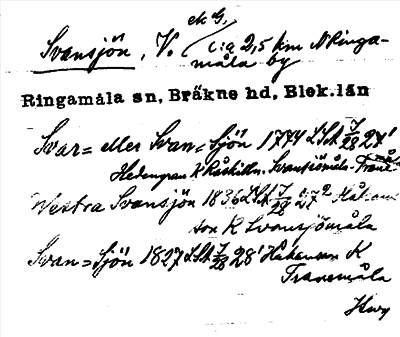 ek G,
Svansjön, V. c:a 2,5 km N Ringa-
måla by
Ringamåla sn, Bräkne hd, Blek. län
Svar= eller Svan=Sjön 1774 LSA 7/28 27'
Hedengran K Råskilln. Svansjömåla-Trane
måla
Westra Svansjön 1836 LSA 7/28 27² Håkans
son K Svansjömåla
Svan=Sjön 1827 LSA 7/28 28' Håkansson K
Tranemåla